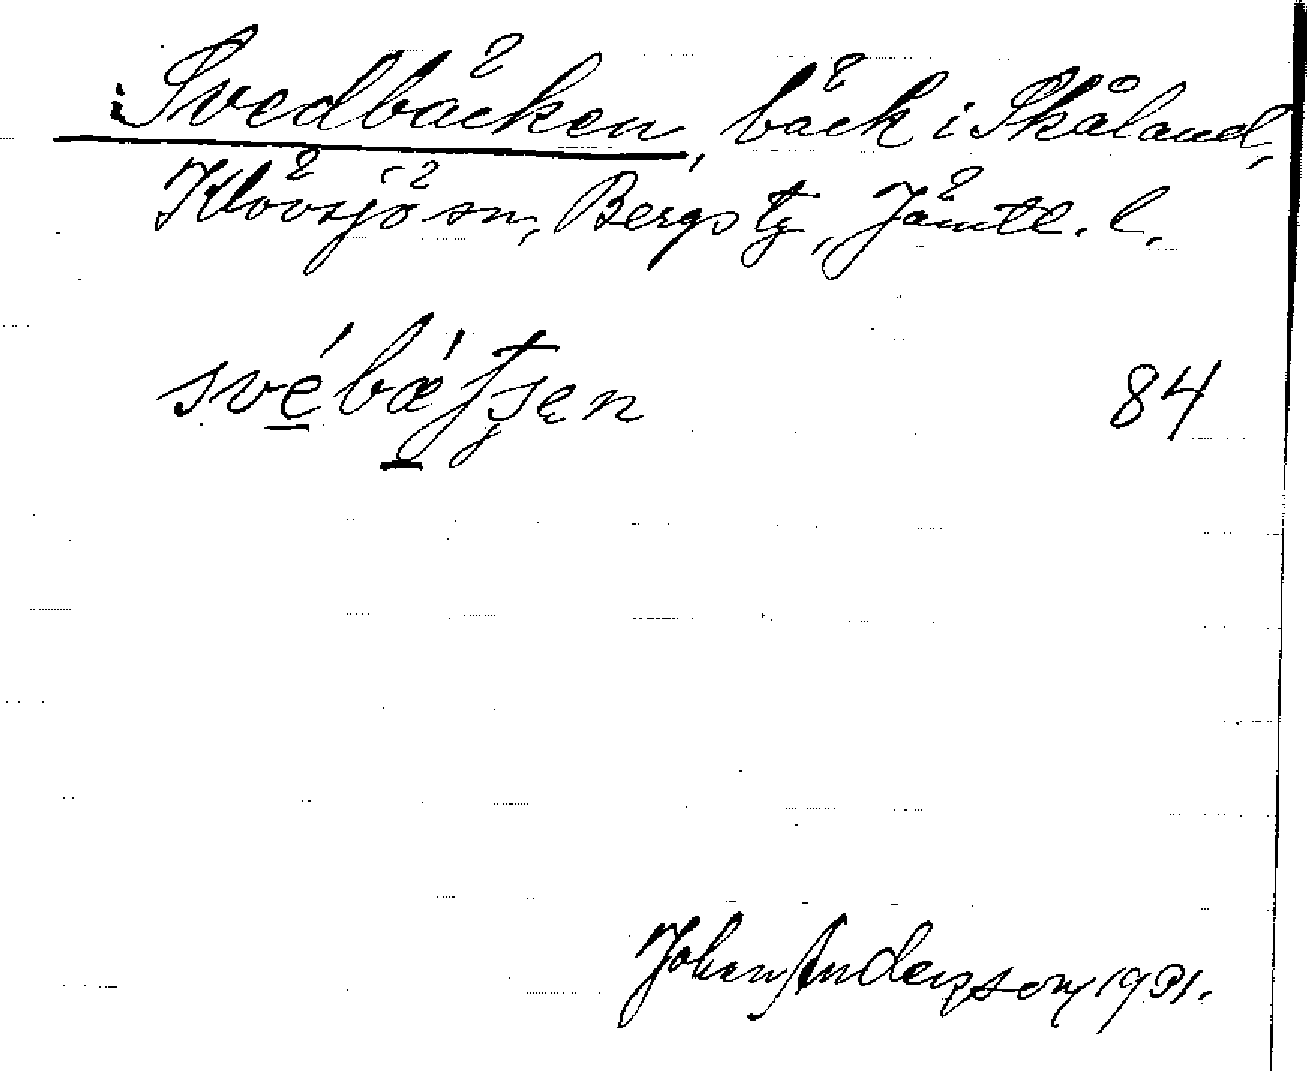 Svedbäcken, bäck i Skåland,
Klövsjö sn, Bergs tg, Jämtl. l.
84
Johan Anderzson, 1931.